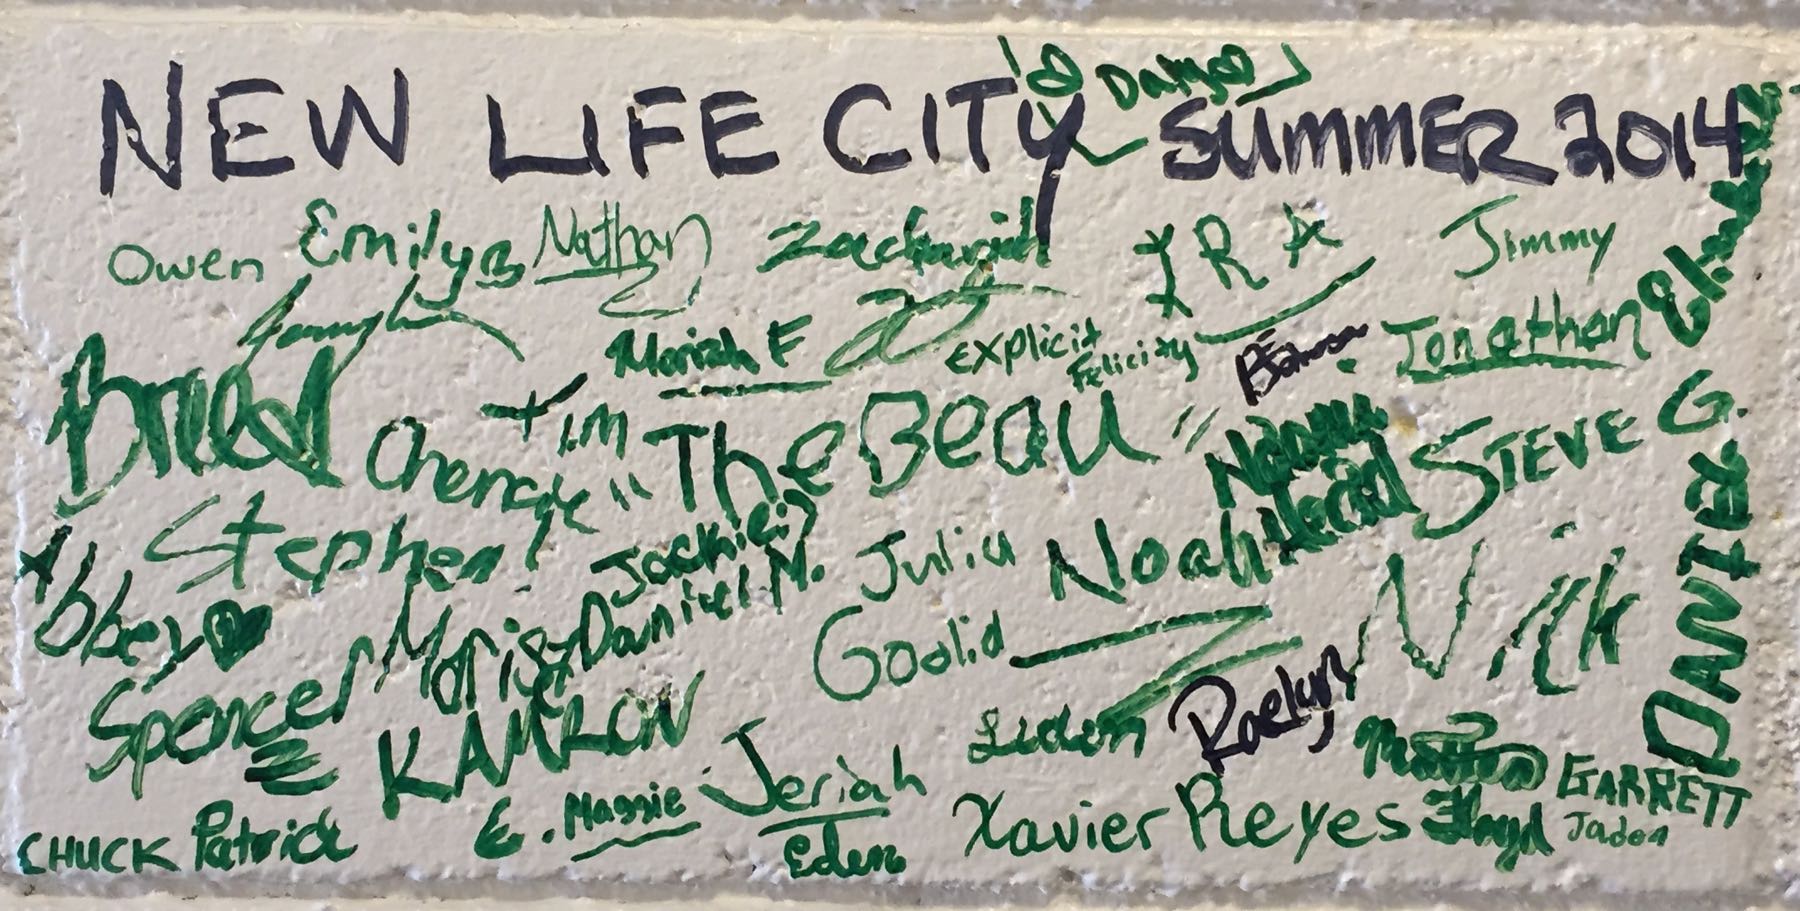 NEW LIFE CITY SUMMER 2014
Owen Emily B Nathan Zachariah IRA Jimmy
Mariah F explicit Jonathan
felicity
Brad Tim "The Beau" STEVE G.
Stephen! Jackie Julia Noah Nick
Abbey Daniel N. DANIEL
Spencer Goolid
KAMRON Raelyn
E. Massie Jeriah GARRETT
CHUCK Patrick Eden Xavier Reyes Floyd Jadon